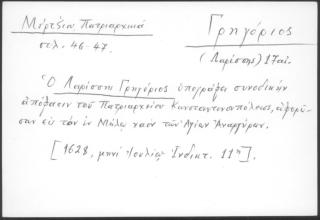 Μέρτζιου Πατριαρχικά
σελ. 46-47.
Γρηγόριος
(Λαρίσσης) 17 αί.
Ὁ Λαρίσσης Γρηγόριος ὑπογράφει συνοδικήν
ἀπόφασιν τοῦ Πατριαρχείου Κωνσταντινουπόλεως, ἀφορῶ-
σαν εἰς τόν ἐν Μήλῳ ναόν τῶν Ἁγίων Ἀναργύρων.
[1628, μηνί Ἰουλίῳ Ἰνδικτ. 11ῃ].